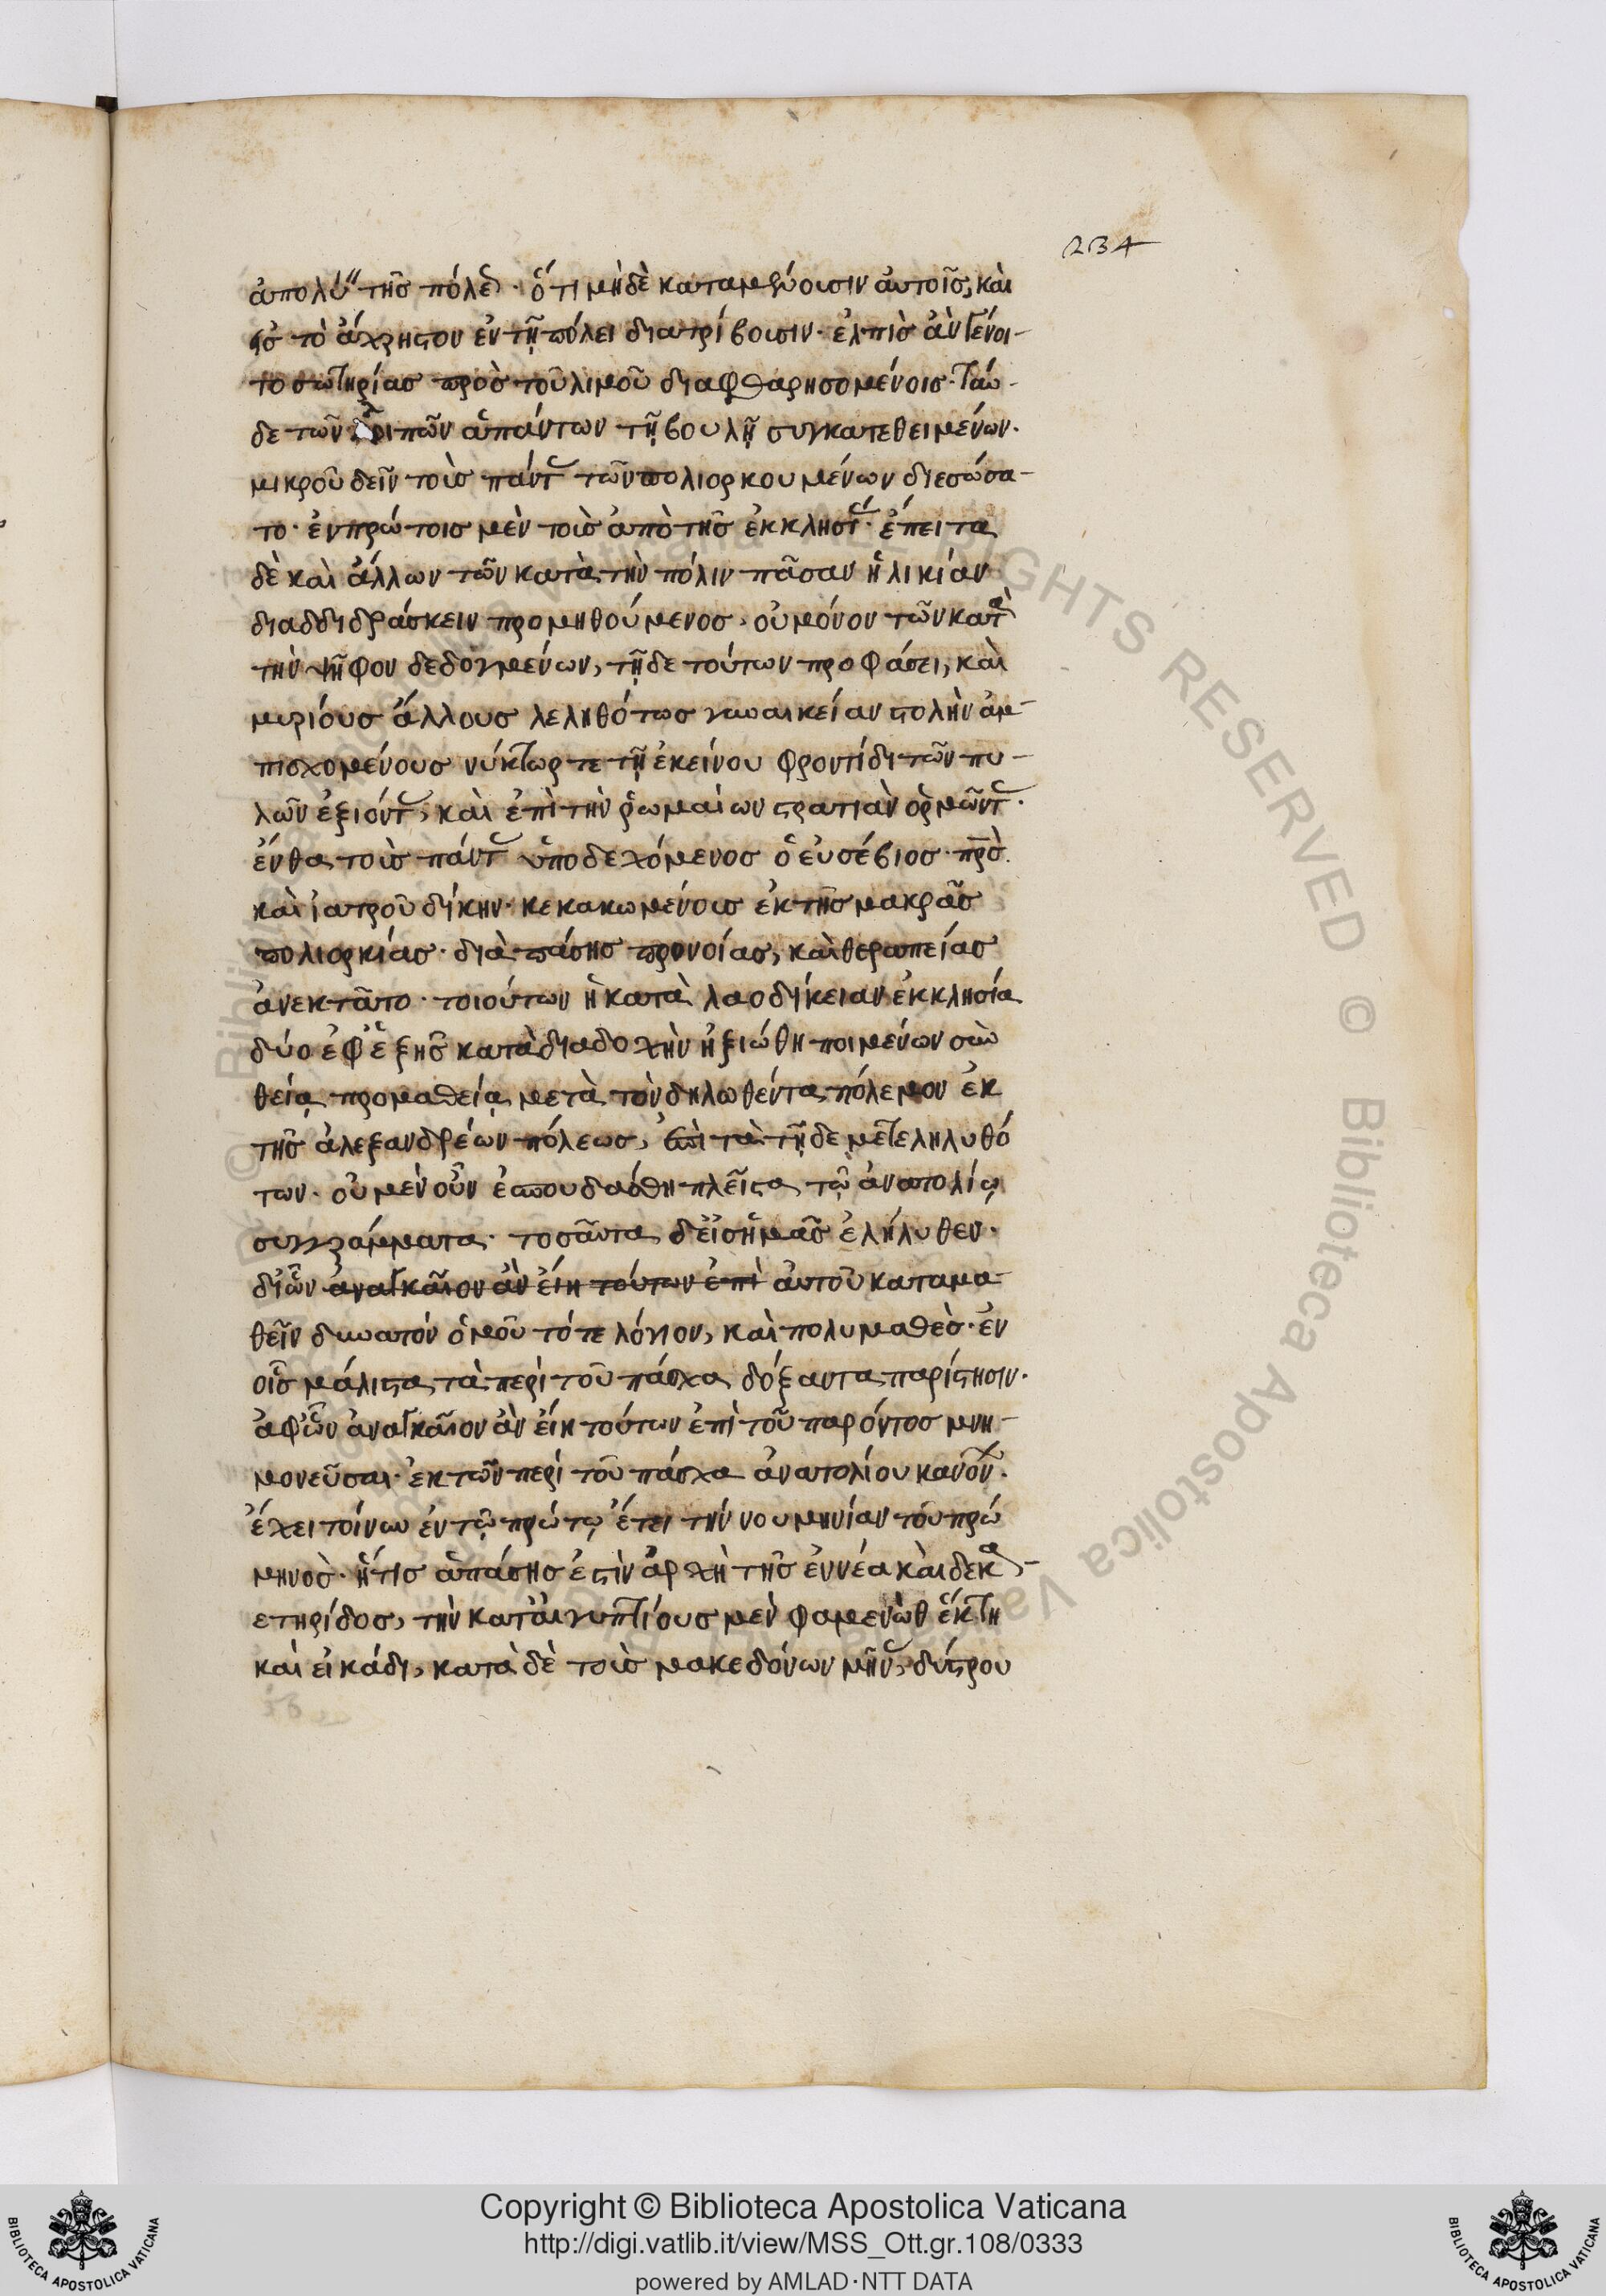 234
ἀπολύ" τῆς πόλε. ὅτι μηδὲ καταμένουσιν αὐτοῖς, καὶ
εἰς τὸ ἄχρηστον ἐν τῇ πόλει διατρίβουσιν. ἐλπὶς ἂν γένοι-
το σωτηρίας πρὸς τοῦ λιμοῦ διαφθαρησομένοις. ταύ-
δε τῶν λοιπῶν ἁπάντων τῇ βουλῇ συγκατεθειμένων.
μικροῦ δεῖν τοὺς πάντ τῶν πολιορκουμένων διεσώσα-
το. ἐν πρώτοις μὲν τοὺς ἀπὸ τῆς ἐκκλησί. ἔπειτα
δὲ καὶ ἄλλων τῶν κατὰ τὴν πόλιν πᾶσαν ἡλικίαν
διαδδιδράσκειν προμηθούμενος, οὐ μόνον τῶν κατὰ
τὴν ψῆφον δεδογμένων, τῇδε τούτων προφάσει, καὶ
μυρίους ἄλλους λεληθότως γυναικείαν στολὴν ἀμ-
πισχομένους νύκτωρ τε τῇ ἐκείνου φροντίδι τῶν πυ-
λῶν ἐξιόντ, καὶ ἐπὶ τὴν ῥωμαίων στρατιὰν ὁρμῶντ.
ἔνθα τοὺς πάντ ὑποδεχόμενος ὁ εὐσέβιος. πρς
καὶ ἰατροῦ δίκην. κεκακωμένους ἐκ τῆς μακρᾶς
πολιορκίας. διὰ πάσης προνοίας, καὶ θεραπείας
ἀνεκτᾶτο. τοιούτων ἡ κατὰ λαοδίκειαν ἐκκλησία
δύο ἐφἑξῆς κατὰ διαδοχὴν ἠξιώθη ποιμένων σὺν
θείᾳ προμαθείᾳ μετὰ τὸν δηλωθέντα πόλεμον ἐκ
τῆς ἀλεξανδρέων πόλεως, ἐπὶ τὰ τῇδε μετεληλυθό
των. οὐ μὲν οὖν ἐσπουδάσθη πλεῖστα τῷ ἀνατολίῳ
συγγράμματα. τοσαῦτα δ εἰς ἡμᾶς ἐλήλυθεν.
δι ὧν ἀναγκαῖον ἂν εἴη τούτων ἐπὶ αὐτοῦ καταμα-
θεῖν δυνατόν ὁμοῦ τό τε λόγιον, καὶ πολυμαθὲς. ἐν
οἷς μάλιστα τὰ περὶ τοῦ πάσχα δόξαντα παρίστησιν.
ἀφ ὧν ἀναγκαῖον ἂν εἴη τούτων ἐπὶ τοῦ παρόντος μνη-
μονεῦσαι. ἐκ τῶν περὶ τοῦ πάσχα ἀνατολίου κανόν.
ἔχει τοίνυν ἐν τῷ πρώτῳ ἔτει τὴν νουμηνίαν τοῦ πρώ
μηνὸς. ἥτις ἁπάσης ἐστὶν ἀρχὴ τῆς ἐννέα καὶ δεκα-
ετηρίδος, τὴν κατ αἰγυπτίους μὲν φαμενὼθ ἕκτη
καὶ εἰκάδι, κατὰ δὲ τοὺς μακεδόνων μῆν, δύστρου
Copyright © Biblioteca Apostolica Vaticana
http://digi.vatlib.it/view/MSS_Ott.gr.108/0333
powered by AMLAD·NTT DATA